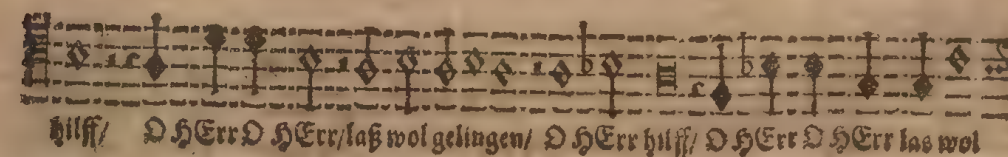 hilff/ O HErr O HErr/laß wol gelingen/ O HErr hilff/ O HErr O HErr las wol